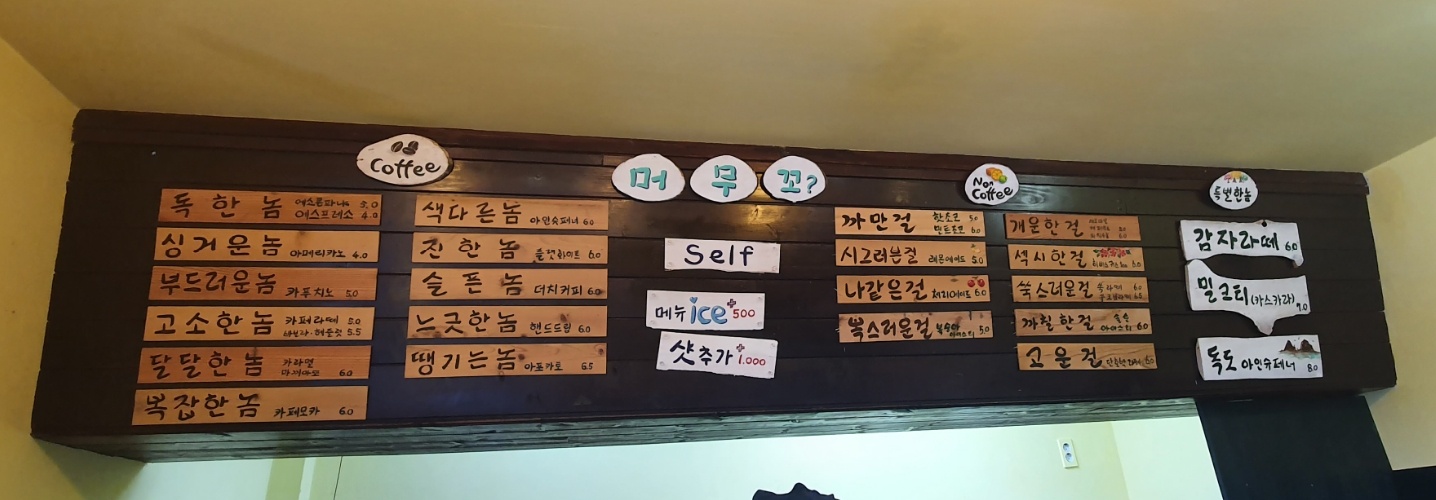 Coffee
독한놈 에스프레소 4.0
싱거운놈 아메리카노 4.0
부드러운놈 카푸치노 5.0
고소한놈 카페라떼 5.0
5.5
달달한놈 카라멜
마끼아또 6.0
복잡한놈 카페모카 6.0
색다른놈 아인슈페너 6.0
진한놈 플랫화이트 6.0
슬픈놈 더치커피 6.0
느긋한놈 핸드드립 6.0
땡기는놈 아포카토 6.5
머무꼬?
Self
메뉴 ice +500
샷추가 +1.000
Non Coffee
까만걸 핫초코 5.0
민트초코 6.0
시그러븐걸 레몬에이드 5.0
나같은걸 체리에이드 6.0
쑥스러운걸 복숭아
아이스티 5.0
개운한걸
섹시한걸
쑥스러운걸 쑥라떼 6.0
까칠한걸 옥수
아이스티 6.0
고운걸
특별한놈
감자라떼 6.0
밀크티 (카스카라) 7.0
독도 아인슈페너 8.0